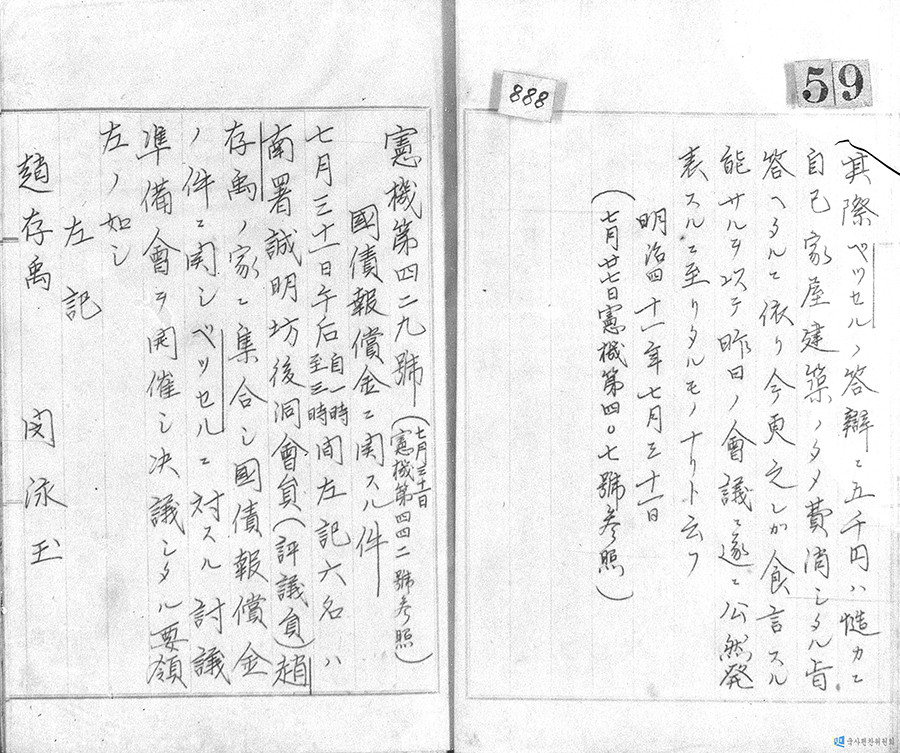 59
888
其際ベツセルノ答辯ニ五千円ハ慥カニ
自己家屋建築ノタメ費消シタル旨
答ヘタルニ依リ今更之レカ食言スル
能サルヲ以テ昨日ノ會議ニ遂ニ公然発
表スルニ至リタルモノナリト云フ
明治四十一年七月三十一日
(七月廿七日憲機第四〇七號参照)
憲機第四二九號(七月三十日憲機第四四二號参照)
國債報償金ニ関スル件
七月三十一日午后自一時至三時間左記六名ハ
南署誠明坊後洞會員(評議員)趙
存禹ノ家ニ集合シ國債報償金
ノ件ニ関シベツセルニ対スル討議
準備會ヲ開催シ決議シタル要領
左ノ如シ
左記
趙存禹 閔泳玉
국사편찬위원회